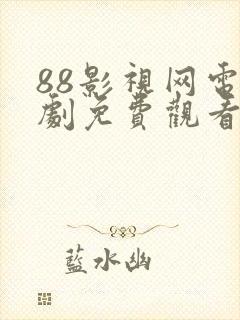 88影視网电
劇免費觀看
藍水幽